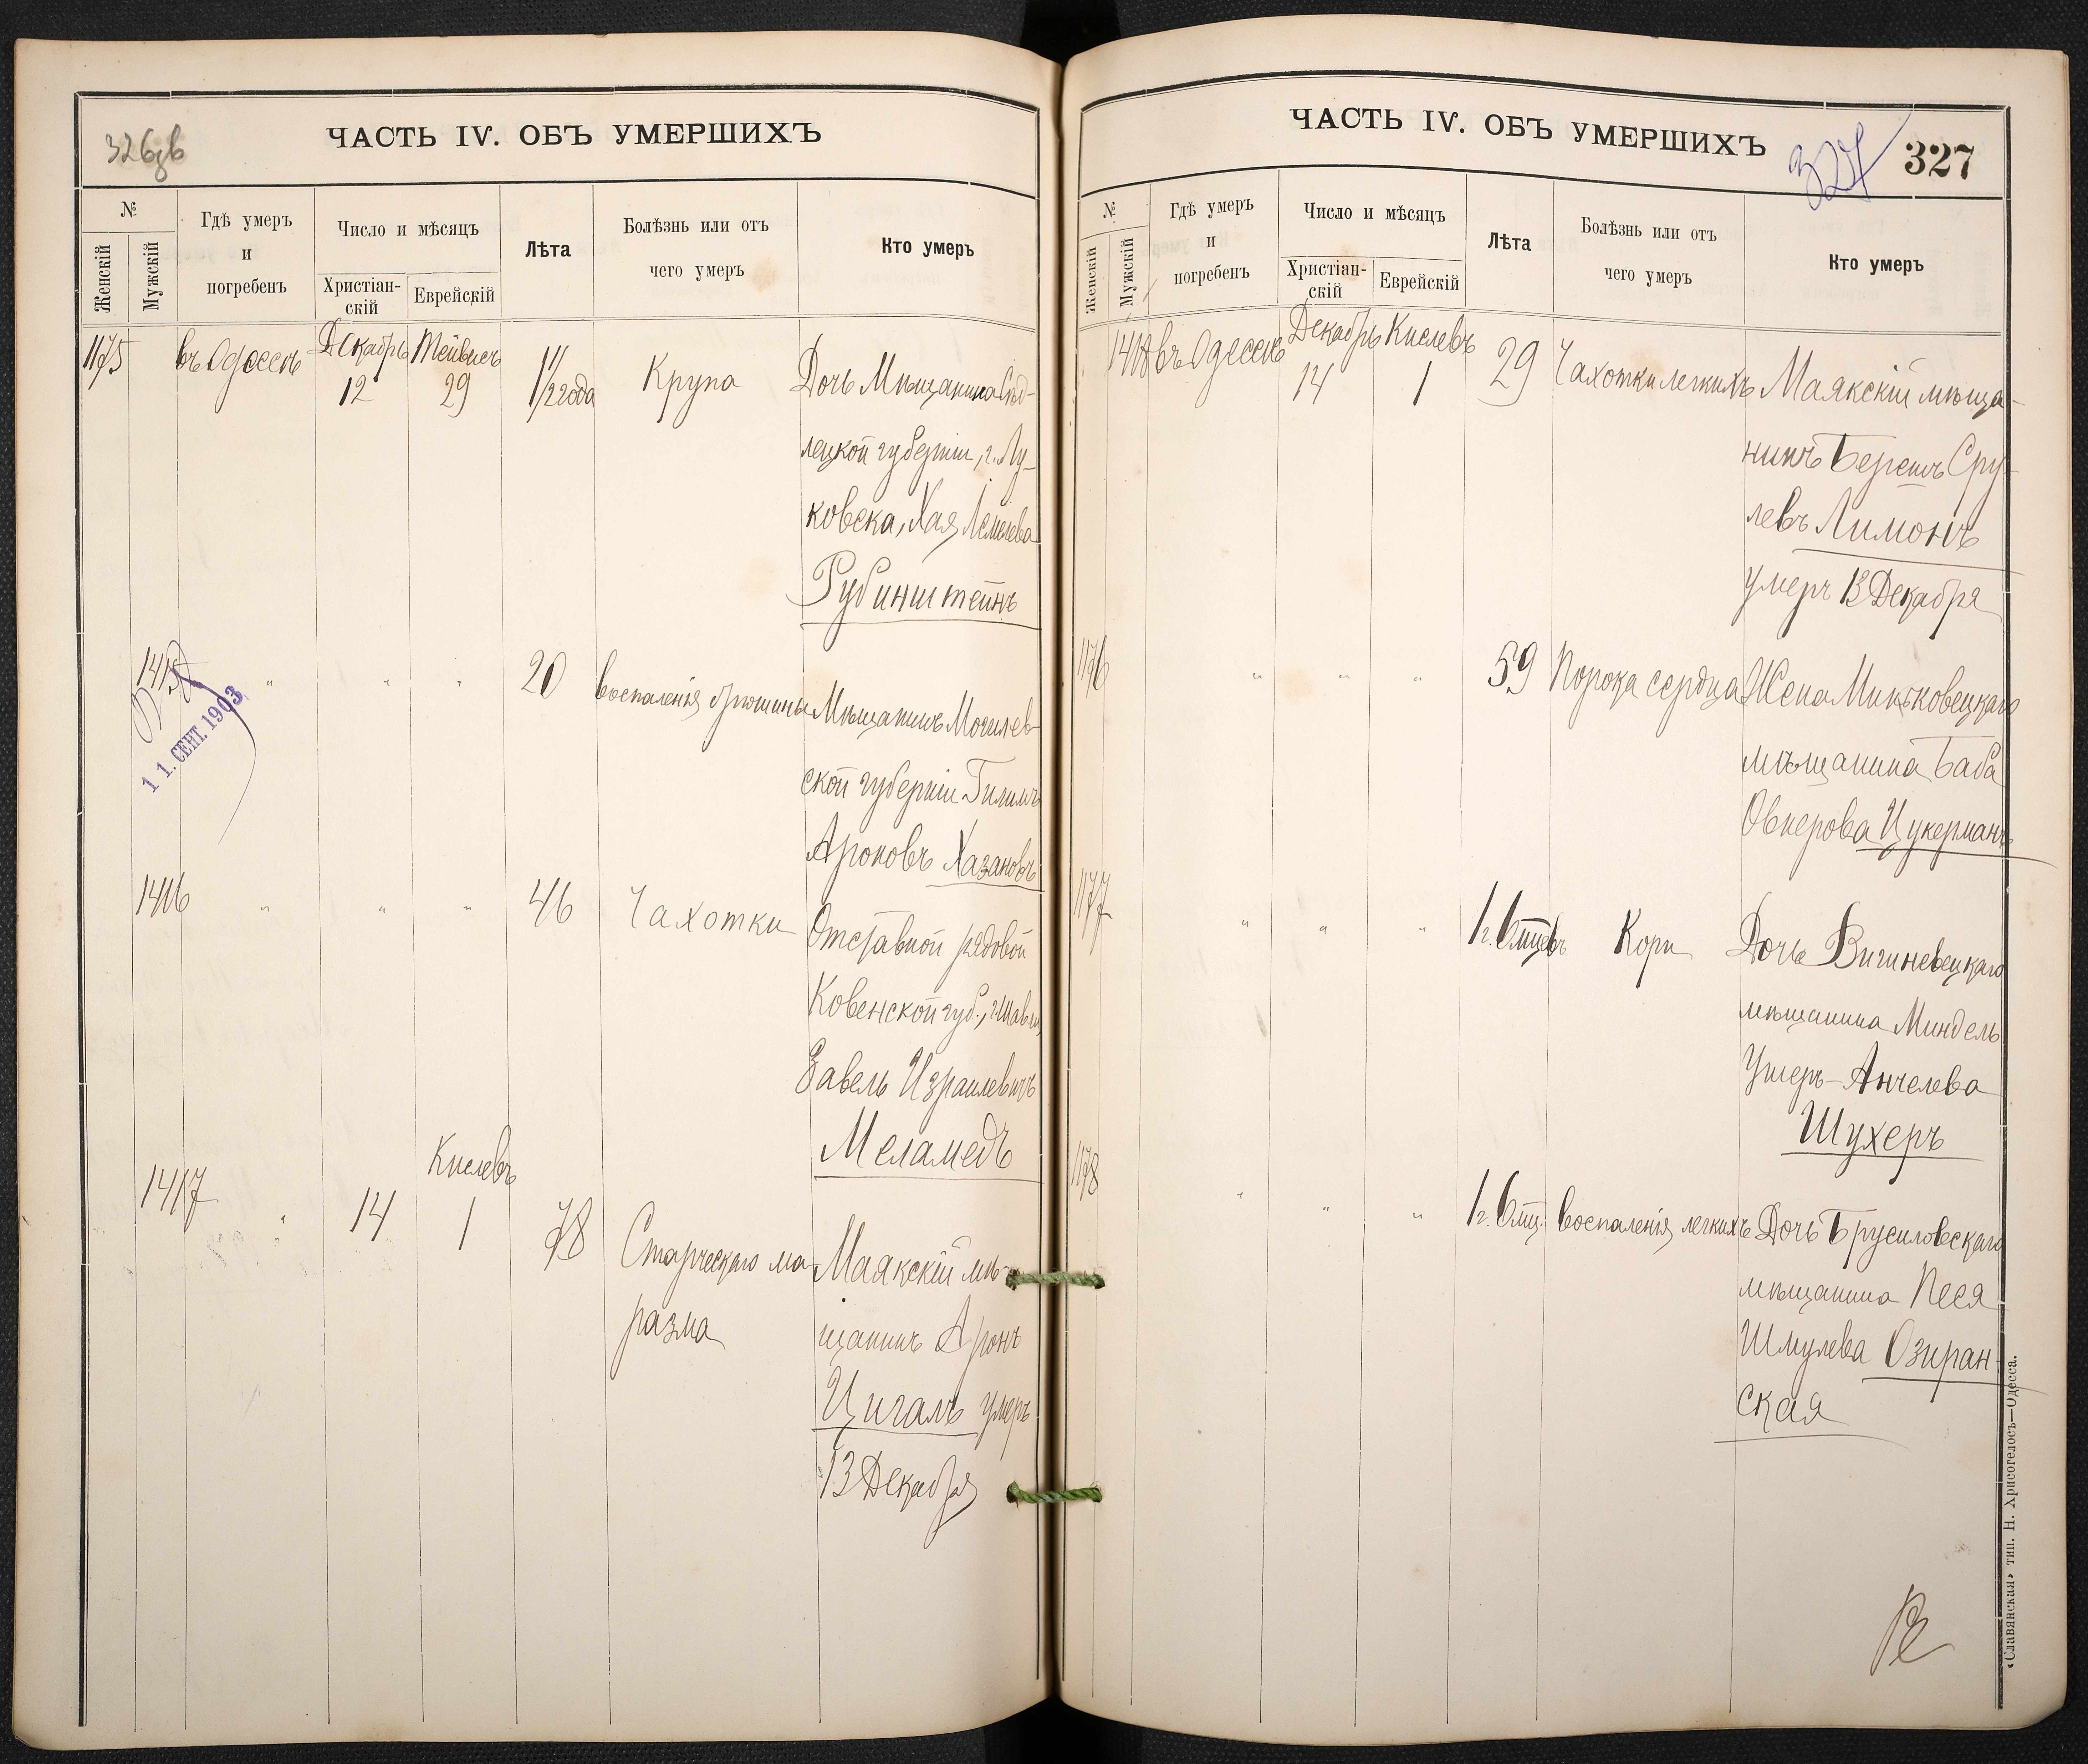 326зв
ЧАСТЬ IV. ОБЪ УМЕРШИХЪ
№
Женскій
Мужскій
Гдѣ умеръ
и
погребенъ
Число и мѣсяцъ
Христіан-
скій
Еврейскій
Лѣта
Болѣзнь или отъ
чего умеръ
Кто умеръ
1175 въ Одессѣ Декабрь 12 29 1 1/2 года Крупа Дочь Мѣщанина Сѣд-
лецкой губерніи, г. Лу-
ковска, Хая Лемелева
Рубинштейнъ
1415 " " " 20 воспаленія брюшины Мѣщанинъ Могилев-
ской губерніи Гилимъ
Ароновъ Хазановъ
11. СЕНТ. 1903
1416 " " " 46 Чахотки Отставной рядовой
Ковенской губ., г. Шавли,
Завель Израилевичъ
Меламедъ
1417 " 14 Кислевъ 1 78 Старческаго ма- Маякскій мѣ-
разма щанинъ Аронъ
Цигалъ умеръ
13 Декабря
ЧАСТЬ IV. ОБЪ УМЕРШИХЪ
327 327
№
Женскій
Мужскій
Гдѣ умеръ
и
погребенъ
Число и мѣсяцъ
Христіан-
скій
Еврейскій
Лѣта
Болѣзнь или отъ
чего умеръ
Кто умеръ
1418 въ Одессѣ Декабрь 14 Кислевъ 1 29 Чахотки легкихъ Маякскій мѣща-
нинъ Берешъ Сру-
левъ Лимонъ
умеръ 13 Декабря
1176 " " " 59 Порока сердца Жена Миньковецкаго
мѣщанина Баба
Овнерова Цукерманъ
1177 " " " 1 г. 6 мцевъ Кори Дочь Вишневецкаго
мѣщанина Миндель
Ушеръ-Анчелева
Шухеръ
1178 " " " 1 г. 6 мц. воспаленія легкихъ Дочь Брусиловскаго
мѣщанина Песя
Шмулева Озиран-
ская
«Славянская» тип. Н. Хрисогелосъ—Одесса.